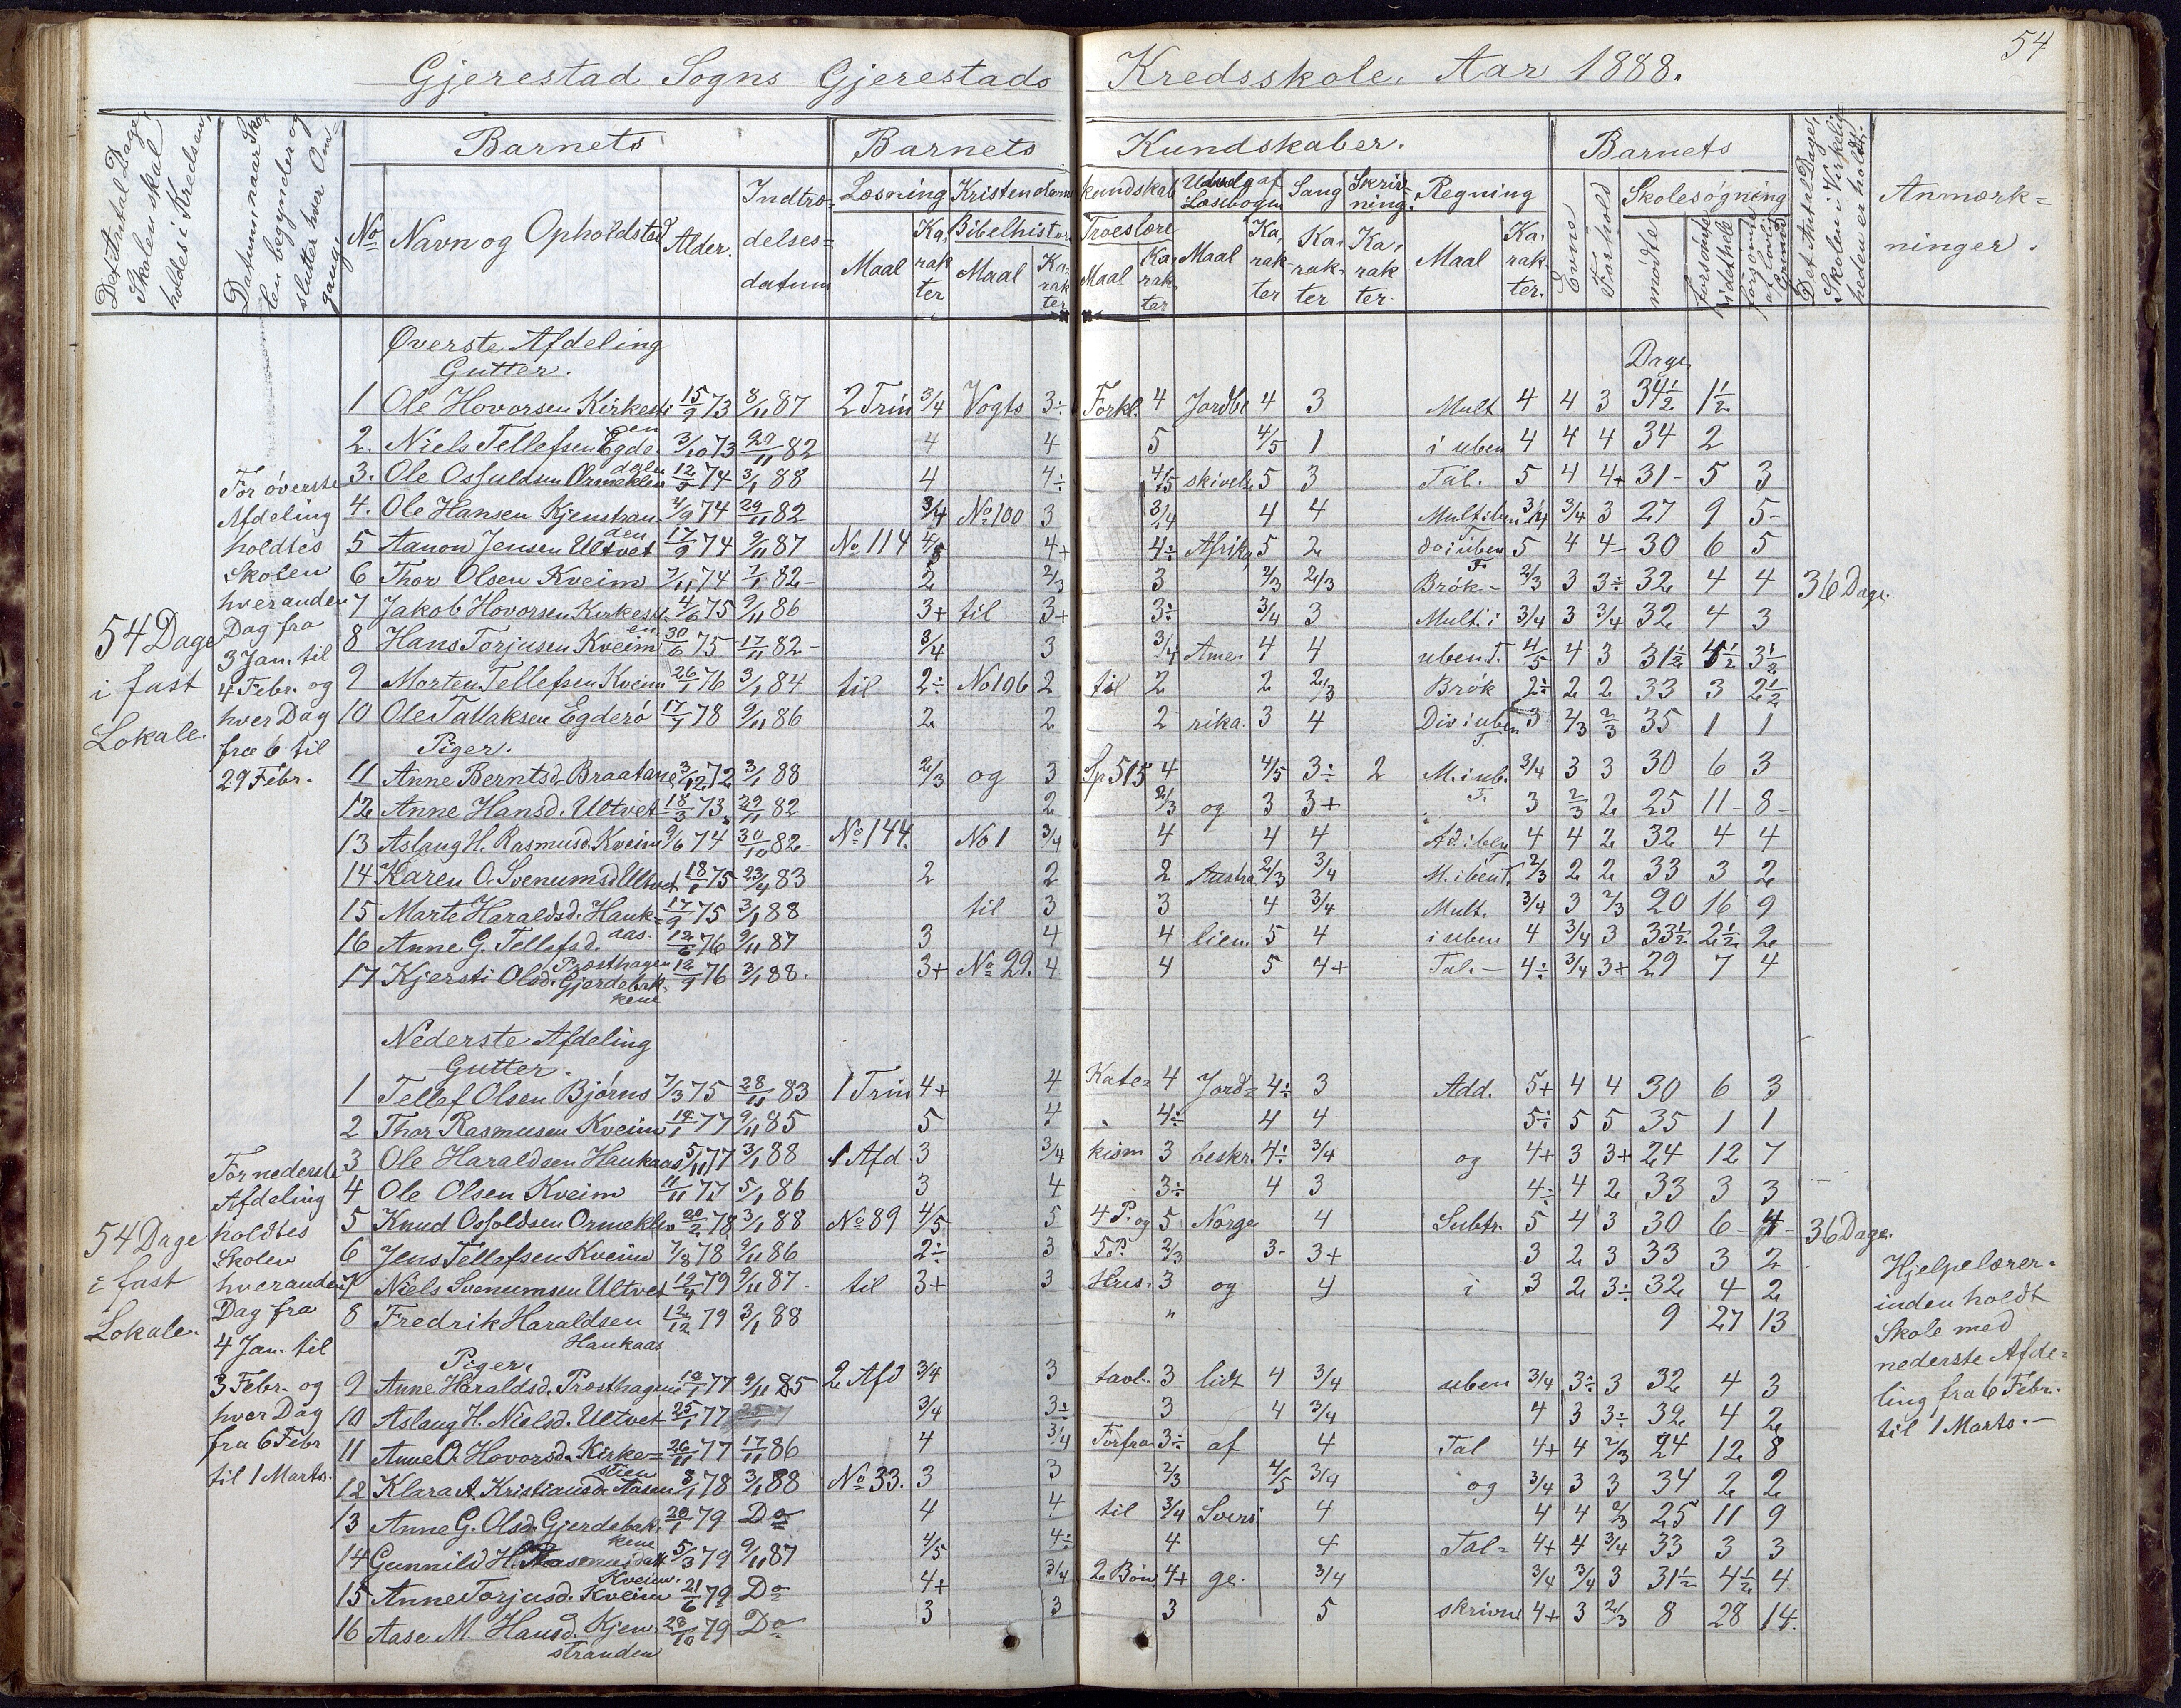 54
Gjerestad Sogns Gjerestads Kredsskole. Aar 1888.
Det Antal Dage, Skolen skal holdes i Kredsen,
Datum naar Skolen begynder og slutter hver Omgang
Barnets
Barnets Kundskaber.
Barnets
Det Antal Dage, Skolen i Virkeligheden er holdt.
Anmærkninger.
No
Navn og Opholdsted
Alder.
Indtrædelsesdatum
Læsning
Kristendomskundskab
Udvalg af Læsebogen
Sang
Skrivning.
Regning
Evne
Forhold
Skolesøgning
Bibelhistorie
Troeslære
Maal
Karakter
Maal
Karakter
Maal
Karakter
Maal
Karakter
Karakter
Karakter.
Maal
Karakter.
mødte
forsømte i det hele
forsømte af lovlig Grund
Øverste Afdeling
Gutter.
Dage
1 Ole Hovorsen Kirkestien 15/9 73 8/11 87 2 Trin 3/4 Vogts 3÷ Forkl. 4 Jordbe 4 3 Mult 4 4 3 34½ 1½
2. Niels Tellefsen Egdedalen 3/10 73 29/11 82 4 4 5 4/5 1 i uben 4 4 4 34 2
3. Ole Osfuldsen Ormeklen 12/5 74 3/1 88 4 4÷ 4/5 skivelse 5 3 Tal. 5 4 4+ 31- 5 3
4. Ole Hansen Kjenstranden 4/9 74 29/11 82 3/4 No 100 3 3/4 4 4 Mult i ben 3/4 3/4 3 27 9 5-
5 Aanon Jensen Ultvet 17/9 74 9/11 87 No 114 4/5 4+ 4÷ Afrika 5 2 do i uben T. 5 4 4- 30 6 5
6 Thor Olsen Kveim 7/11 74 7/1 82- 2 2/3 3 2/3 2/3 Brøk- 2/3 3 3÷ 32 4 4
7 Jakob Hovorsen Kirkestien 4/6 75 9/11 86 3+ til 3+ 3÷ 3/4 3 Mult. i 3/4 3 3/4 32 4 3
8 Hans Torjusen Kveim 30/6 75 17/11 82- 3/4 3 3/4 Ame- 4 4 uben T. 4/5 4 3 31½ 4½ 3½
9 Morten Tellefsen Kveim 26/1 76 3/1 84 til 2÷ No 106 2 til 2 2 2/3 Brøk 2÷ 2 2 33 3 2½
10 Ole Tallaksen Egderø 17/1 78 9/11 86 2 2 2 rika. 3 4 Div i uben T. 3 2/3 2/3 35 1 1
36 Dage.
Piger.
11 Anne Berntsd. Braatane 3/12 72 3/1 88 2/3 og 3 Sp 515 4 4/5 3÷ 2 M. i ub. T. 3/4 3 3 30 6 3
12 Anne Hansd. Ultvet 18/3 73 29/11 82 2 2/3 og 3 3+ 3 2/3 2 25 11- 8-
13 Aslaug H. Rasmusd. Kveim 9/6 74 30/10 82. No 144. No 1 3/4 4 4 4 Ad. i ben 4 4 2 32 4 4
14 Karen O. Svenumsd. Ultvet 18/1 75 23/4 83 2 2 2 Austra 2/3 3/4 M. i ben T. 2/3 2 2 33 3 2
15 Marte Haraldsd. Haukaas. 17/9 75 3/1 88 til 3 3 4 3/4 Mult. 3/4 3 2/3 20 16 9
16 Anne G. Tellefsd. Præsthagen 12/6 76 9/11 87 3 4 4 lien 5 4 i uben 4 3/4 3 33½ 2½ 2
17 Kjersti Olsd. Gjerdebakkene 12/9 76 3/1 88. 3+ No 29. 4 4 5 4+ Tal.- 4÷ 3/4 3+ 29 7 4
54 Dage
i fast
Lokale.
For øverste
Afdeling
holdtes
Skolen
hveranden
Dag fra
3 Jan. til
4 Febr. og
hver Dag
fra 6 til
29 Febr.
Nederste Afdeling
Gutter.
1 Tellef Olsen Bjørns 7/3 75 28/11 83 1 Trin 4+ 4 Kate- 4 Jord- 4÷ 3 Add. 5+ 4 4 30 6 3
2 Thor Rasmusen Kveim 14/1 77 9/11 85 5 4 4÷ 4 4 5÷ 5 5 35 1 1
3 Ole Haraldsen Haukaas 5/11 77 3/1 88 1 Afd 3 3/4 kism 3 beskr. 4÷ 3/4 og 4+ 3 3+ 24 12 7
4 Ole Olsen Kveim 11/11 77 5/1 86 3 4 3÷ 4 3 4÷ 4 2 33 3 3
5 Knud Osfoldsen Ormeklen 20/2 78 3/1 88 No 89 4/5 5 4 P. og 5 Norge 4 Subtr. 5 4 3 30 6- 4-
6 Jens Tellefsen Kveim 7/8 78 9/11 86 2÷ 3 5 P. 2/3 3- 3+ 3 2 3 33 3 2
7 Niels Svenumsen Ultvet 12/4 79 9/11 87- til 3+ 3 Hus- 3 og 4 i 3 2 3÷ 32 4 2
8 Fredrik Haraldsen Haukaas 12/12 79 3/1 88 " 9 27 13
36 Dage.
Piger.
9 Anne Haraldsd. Præsthagen 12/1 77 9/11 85 2 Afd 3/4 3 tavl. 3 lidt 4 3/4 uben 3/4 3÷ 3 32 4 3
10 Aslaug H. Nielsd. Ultvet 25/1 77 3/4 3÷ 3 4 3/4 4 3 3÷ 32 4 2
11 Anne O. Hovorsd. Kirkestien 26/11 77 17/11 86 4 3/4 Forfra 3÷ af 4 Tal 4+ 4 2/3 24 12 8
12 Klara A. Kristiansd. Aasen 3/1 78 3/1 88 No 33. 3 3 2/3 4/5 3/4 og 3/4 3 3 34 2 2
13 Anne G. Olsd. Gjerdebakkene 20/1 79 Do 4 4 til 3/4 Sveri 4 4 4 2/3 25 11 9
14 Gunnild H. Rasmusdatt Kveim. 5/3 79 9/11 87 4/5 4÷ 4 4 Tal- 4+ 4 3/4 33 3 3
15 Anne Torjusd. Kveim 21/6 79 Do 4+ 3/4 2 Bøn 4+ ge. 3/4 3/4 3/4 3 31½ 4½ 4
16 Aase M. Hansd. Kjenstranden 28/10 79 Do 3 3 3 5 skrivn 4+ 3 2/3 8 28 14.
54 Dage
i fast
Lokale.
For nederste
Afdeling
holdtes
Skolen
hveranden
Dag fra
4 Jan. til
3 Febr. og
hver Dag
fra 6 Febr
til 1 Marts.
Hjelpelærer-
inden holdt
Skole med
nederste Afde-
ling fra 6 Febr.
til 1 Marts.-